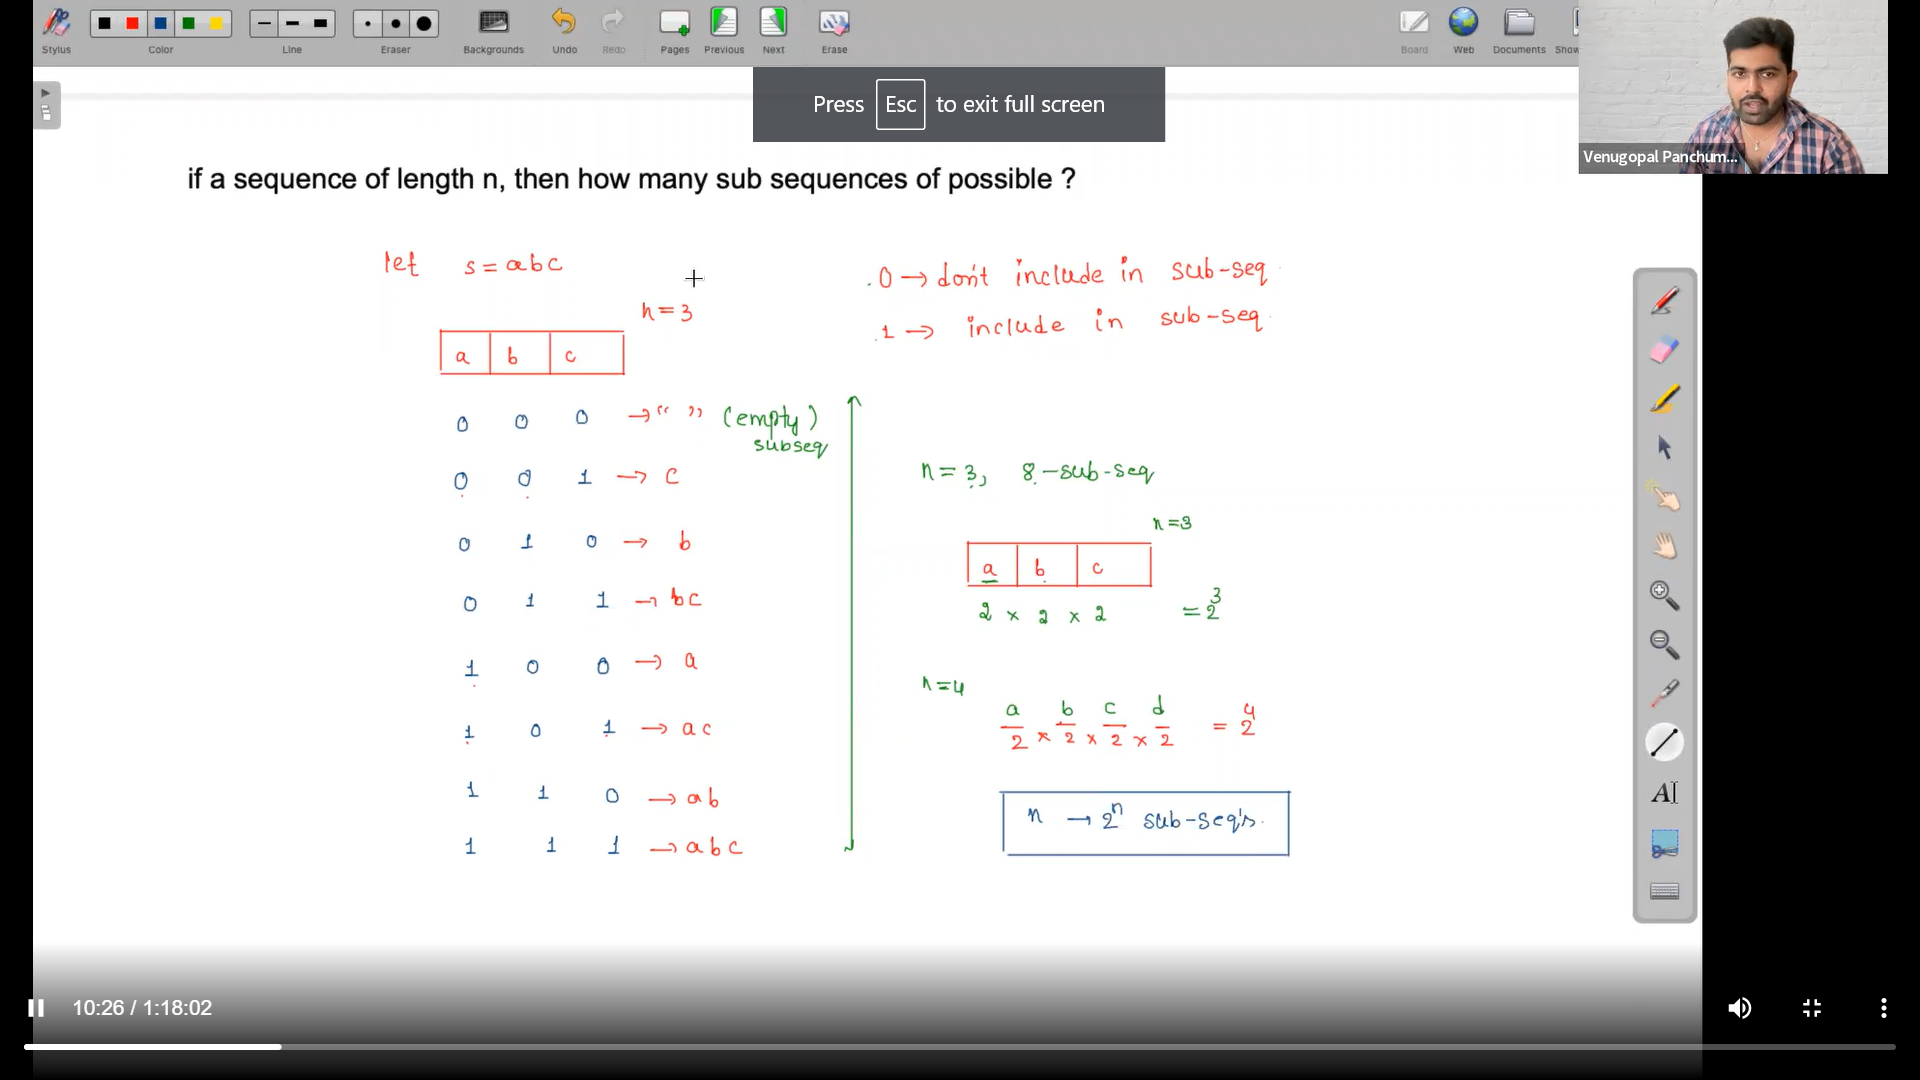 Stylus Color Line Eraser Backgrounds Undo Redo Pages Previous Next Erase Board Web Documents Show
Press Esc to exit full screen
Venugopal Panchum...
if a sequence of length n, then how many sub sequences of possible ?
let s = abc
n = 3
a b c
0 0 0 → “ ” (empty)
subseq
0 0 1 → c
0 1 0 → b
0 1 1 → bc
1 0 0 → a
1 0 1 → ac
1 1 0 → ab
1 1 1 → abc
0 → don't include in sub-seq
1 → include in sub-seq
n = 3, 8 - sub-seq
n = 3
a b c
2 × 2 × 2 = 2³
n = 4
a b c d
2 × 2 × 2 × 2 = 2⁴
n → 2ⁿ sub-seq's.
A
10:26 / 1:18:02